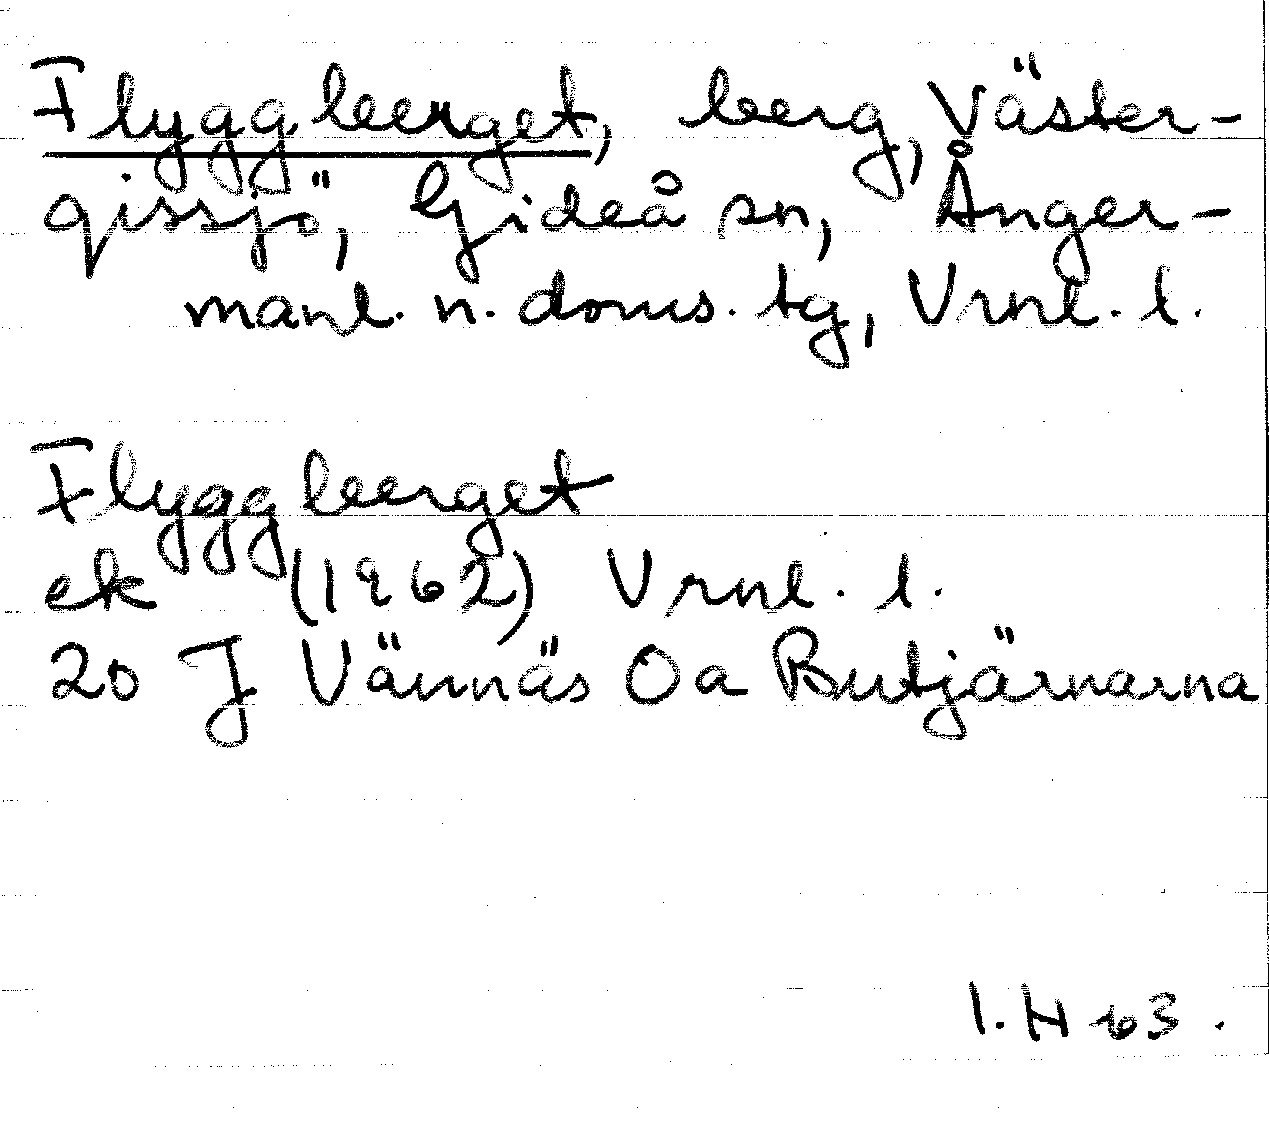 Flyggberget, berg, Väster-
gissjö, Gideå sn, Ånger-
manl. n. doms. tg, Vrnl. l.
Flyggberget
ek (1962) Vrnl. l.
20 J Vännäs Oa Butjärnarna
I. H 63.